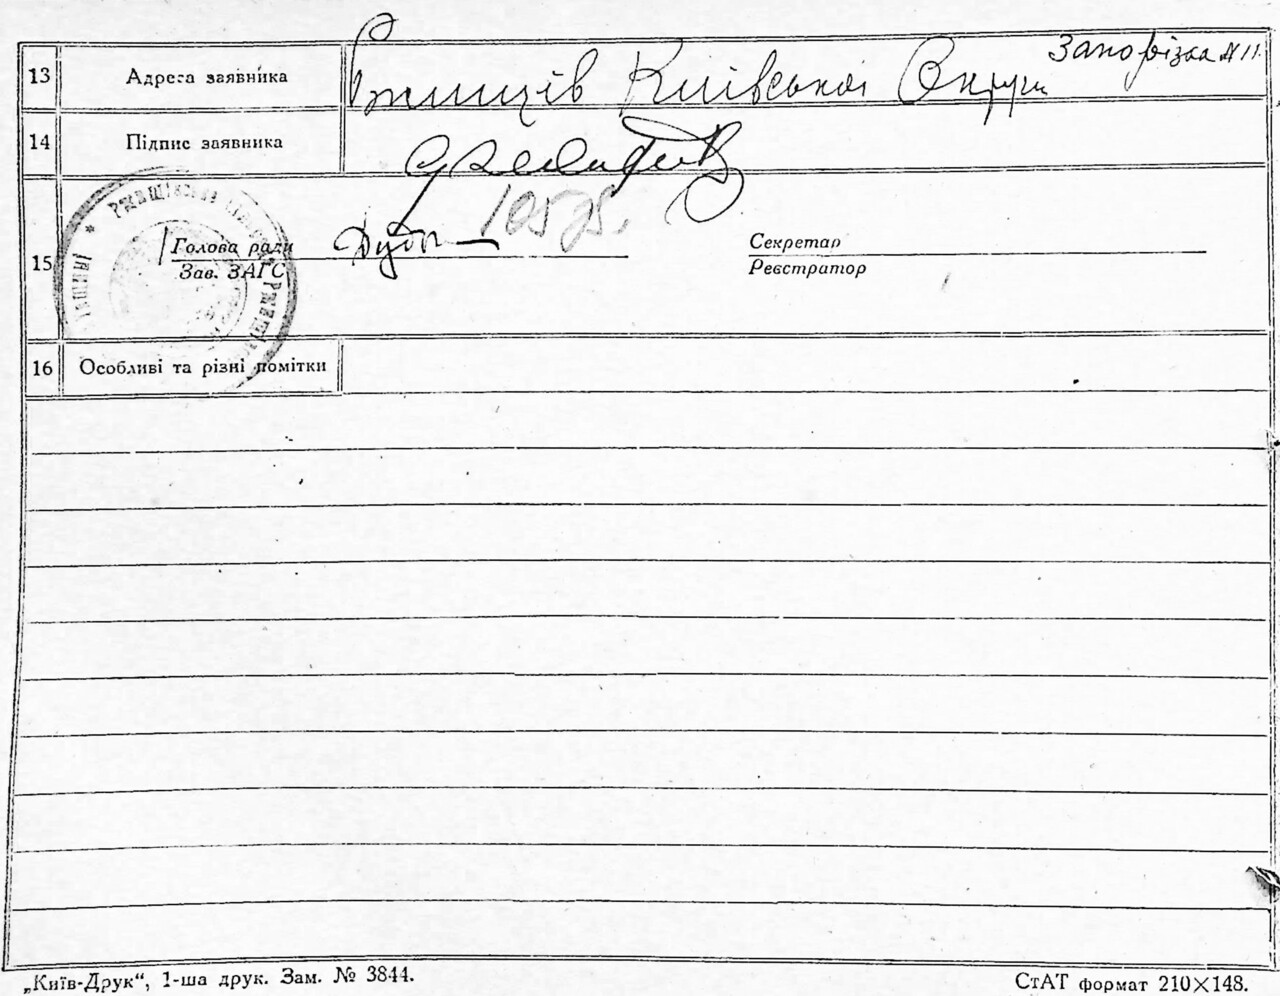 Запорізка № 11.
13 Адреса заявника Ржищів Київської Округи
14 Підпис заявника
105
15 Голова ради Секретар
Зав. ЗАГС Реєстратор
16 Особливі та різні помітки
„Київ-Друк“, 1-ша друк. Зам. № 3844. СтАТ формат 210×148.